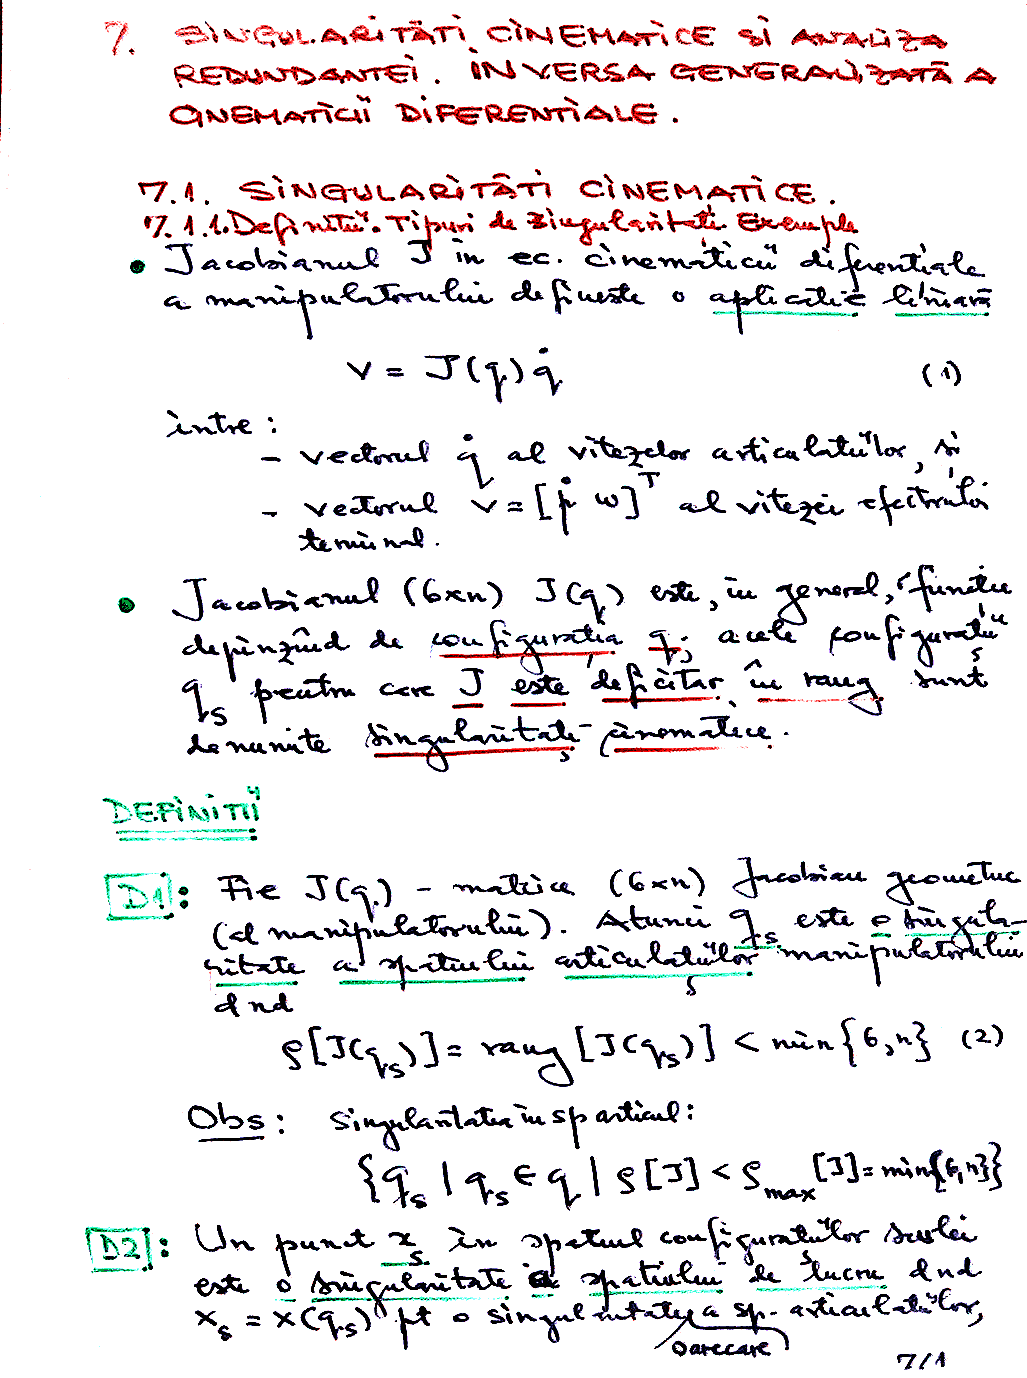 7. SINGULARITĂTI CINEMATICE SI ANALIZA
REDUNDANTEI. INVERSA GENERALIZATĂ A
CINEMATICII DIFERENTIALE.
7.1. SINGULARITĂTI CINEMATICE.
7.1.1. Definitii. Tipuri de singularități. Exemple
• Jacobianul J în ec. cinematicii diferentiale
a manipulatorului defineste o aplicatie liniară
v = J(q) q̇ (1)
intre:
- vectorul q̇ al vitezelor articulatiilor, si
- vectorul v = [ṗ w]ᵀ al vitezei efectorului
terminal.
• Jacobianul (6xn) J(q) este, in general, functie
depinzînd de configuratia q; acele configurații
qₛ pentru care J este deficitar în rang sunt
denumite singularitati cinematice.
DEFINITII
D1: Fie J(q) - matrice (6xn) Jacobian geometric
(al manipulatorului). Atunci qₛ este o singula-
ritate a spatiului articulatiilor manipulatorului
dnd
ρ[J(qₛ)] = rang [J(qₛ)] < min{6,n} (2)
Obs: Singularitatea in sp articul:
{qₛ | qₛ ∈ q | ρ[J] < ρmax[J] = min{6,n}}
D2: Un punct xₛ în spatiul configuratiilor sarlei
este o singularitate a spatiului de lucru dnd
xₛ = x(qₛ) pt o singularitate a sp. articulatiilor,
oarecare
7/1